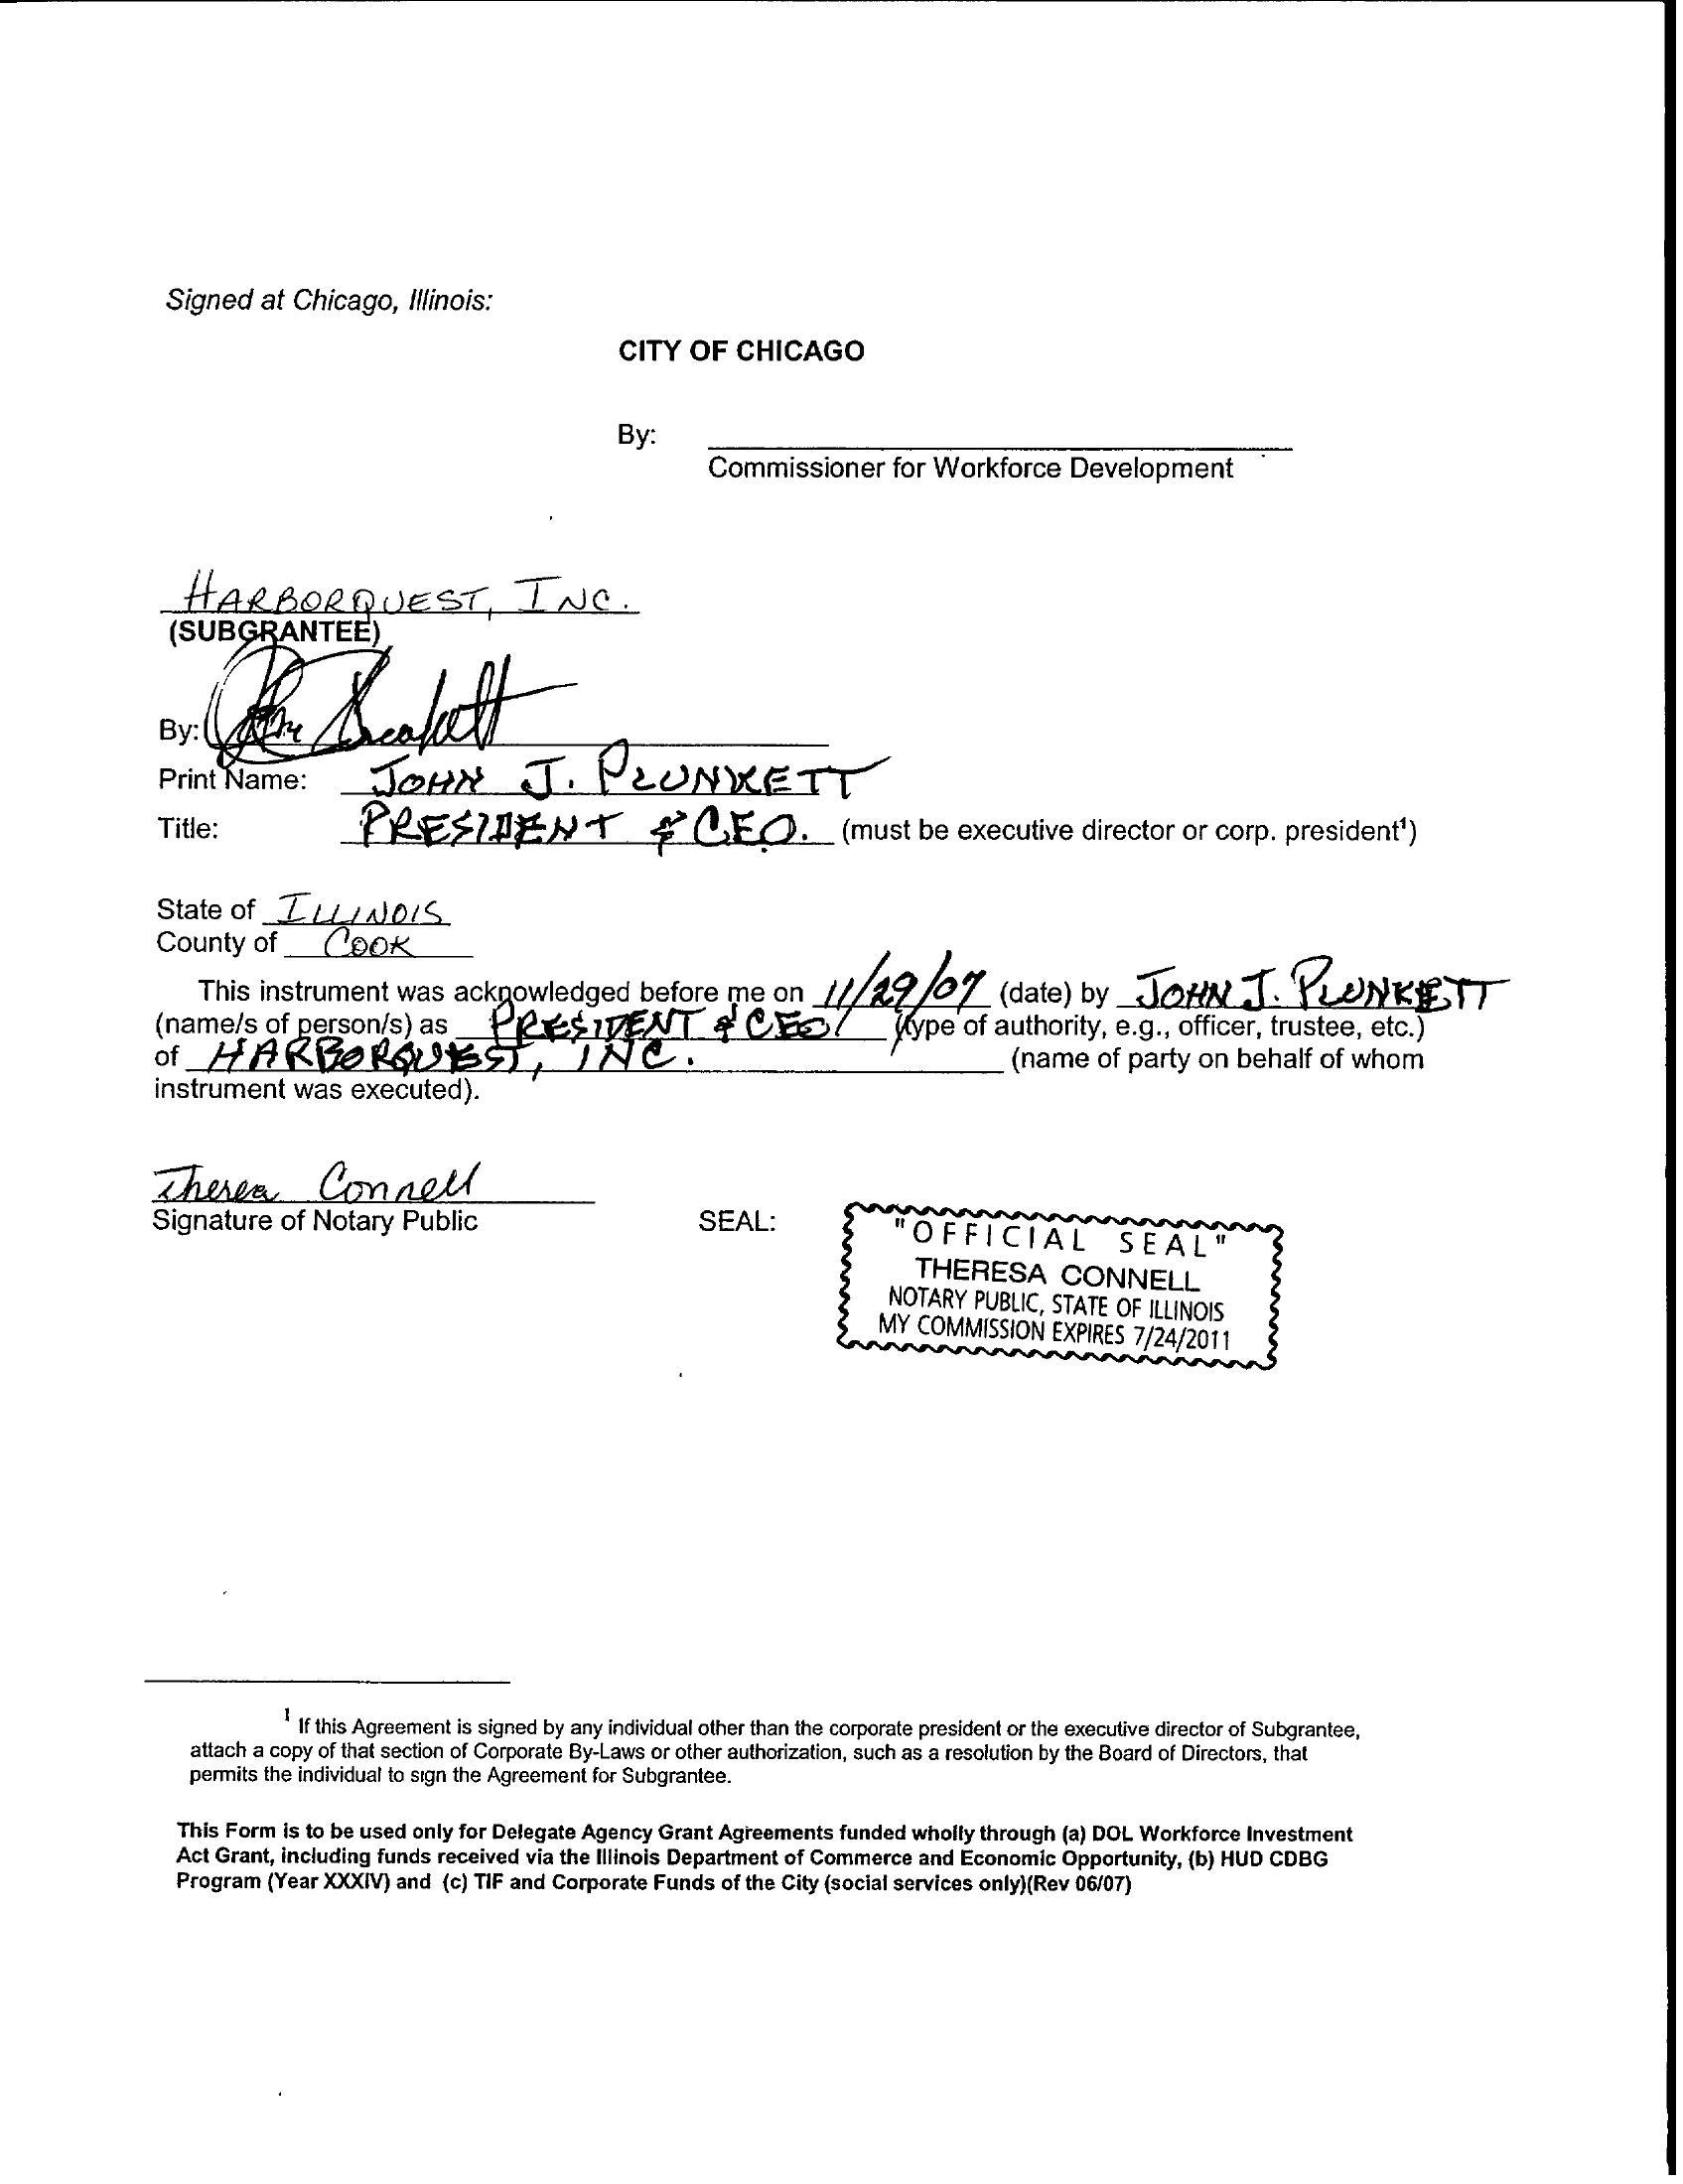 Signed at Chicago, Illinois:
CITY OF CHICAGO
By:
Commissioner for Workforce Development
HARBORQUEST, INC.
(SUBGRANTEE)
By:
Print Name: JOHN J. PLUNKETT
Title: PRESIDENT & CEO. (must be executive director or corp. president¹)
State of ILLINOIS
County of COOK
This instrument was acknowledged before me on 11/29/07 (date) by JOHN J. PLUNKETT
(name/s of person/s) as PRESIDENT & CEO (type of authority, e.g., officer, trustee, etc.)
of HARBORQUEST, INC. (name of party on behalf of whom
instrument was executed).
Theresa Connell
Signature of Notary Public SEAL:
"OFFICIAL SEAL"
THERESA CONNELL
NOTARY PUBLIC, STATE OF ILLINOIS
MY COMMISSION EXPIRES 7/24/2011
¹ If this Agreement is signed by any individual other than the corporate president or the executive director of Subgrantee,
attach a copy of that section of Corporate By-Laws or other authorization, such as a resolution by the Board of Directors, that
permits the individual to sign the Agreement for Subgrantee.
This Form is to be used only for Delegate Agency Grant Agreements funded wholly through (a) DOL Workforce Investment
Act Grant, including funds received via the Illinois Department of Commerce and Economic Opportunity, (b) HUD CDBG
Program (Year XXXIV) and (c) TIF and Corporate Funds of the City (social services only)(Rev 06/07)